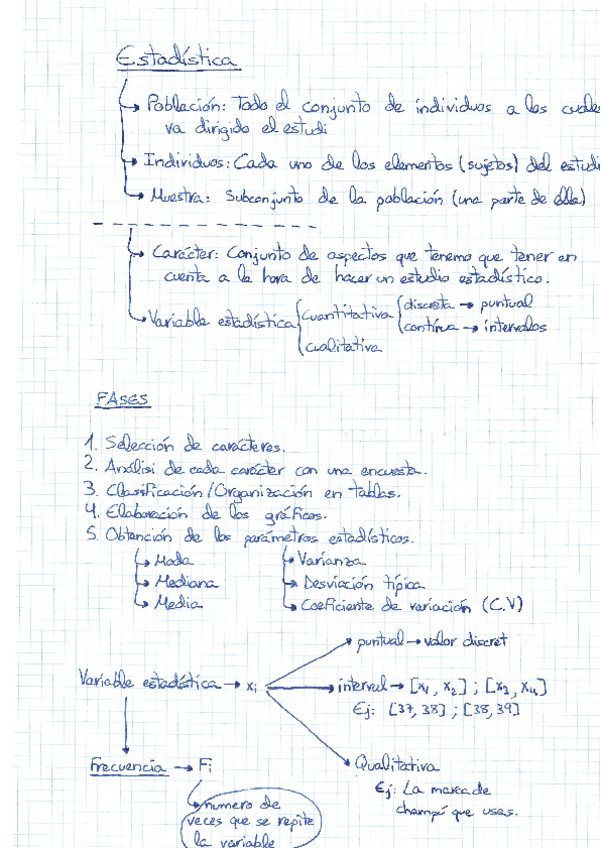 Estadística
→ Población: Todo el conjunto de individuos a los cuales
va dirigido el estudi
→ Individuos: Cada uno de los elementos (sujetos) del estudi
→ Muestra: Subconjunto de la población (una parte de ella)
→ Carácter: Conjunto de aspectos que tenemo que tener en
cuenta a la hora de hacer un estudio estadístico.
→ Variable estadística { cuantitativa { discreta → puntual
contínua → intervalos
cualitativa
FASES
1. Selección de carácteres.
2. Análisi de cada carácter con una encuesta.
3. Classificación/Organización en tablas.
4. Elaboración de los gráficos.
5. Obtención de los parámetros estadísticos.
→ Moda → Varianza
→ Mediana → Desviación típica
→ Media → Coeficiente de variación (C.V)
puntual → valor discret
Variable estadística → xi → interval → [x1, x2] ; [x3, x4]
Ej: [37, 38] ; [38, 39]
Frecuencia → Fi Qualitativa
Ej: La marca de
champú que usas.
→ numero de
veces que se repite
la variable